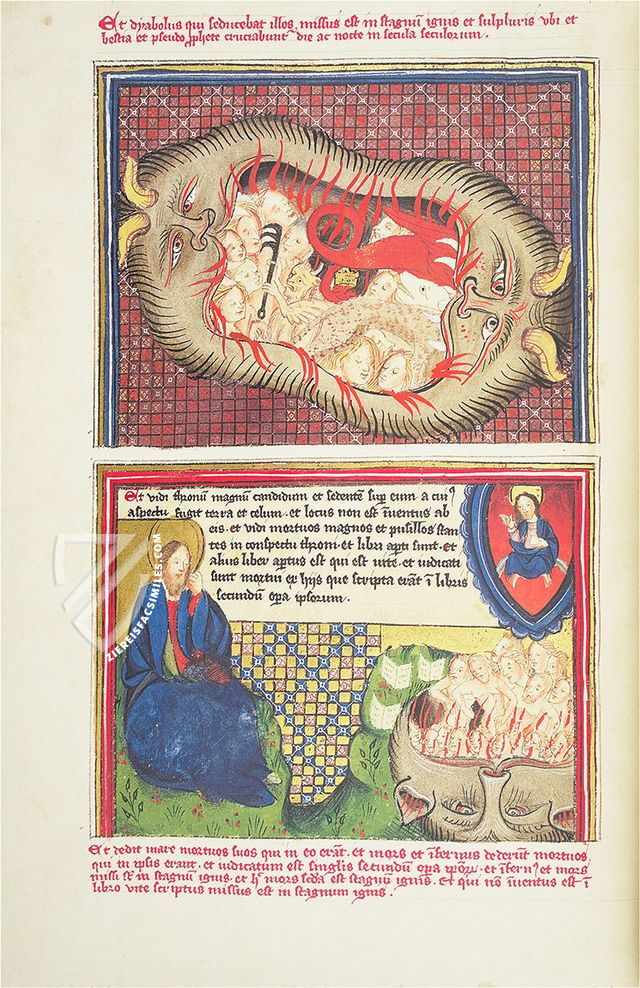 Et dyabolus qui seducebat illos, missus est in stagnū ignis et sulphuris vbi et
bestia et pseudo ꝓphete cruciabunt᷑ die ac nocte in secula seculorum.
Et vidi thronū magnū candidum et sedentē sup̱ eum a cuiꝰ
aspectu fugit terra et celum. et locus non est īuentus ab
eis. et vidi mortuos magnos et pusillos stan
tes in conspectu throni. et libri ap̱ti sunt. et
alius liber ap̱tus est qui est vite. et iudicati
sunt mortui ex hijs que scripta erāt ī libris
secundū op̱a ipsorum.
ZIEREISFACSIMILES.COM
Et dedit mare mortuos suos qui in eo erāt. et mors et īfernus dederūt mortuos
qui in ipsis erant. et iudicatum est singlis secundū op̱a ip̱oꝝ. et īfernꝰ et mors
missi st̄ in stagnū ignis. et h̄ mors scđa est stagnū ignis. Et qui nō īuentus est ī
libro vite scriptus missus est in stagnum ignis.